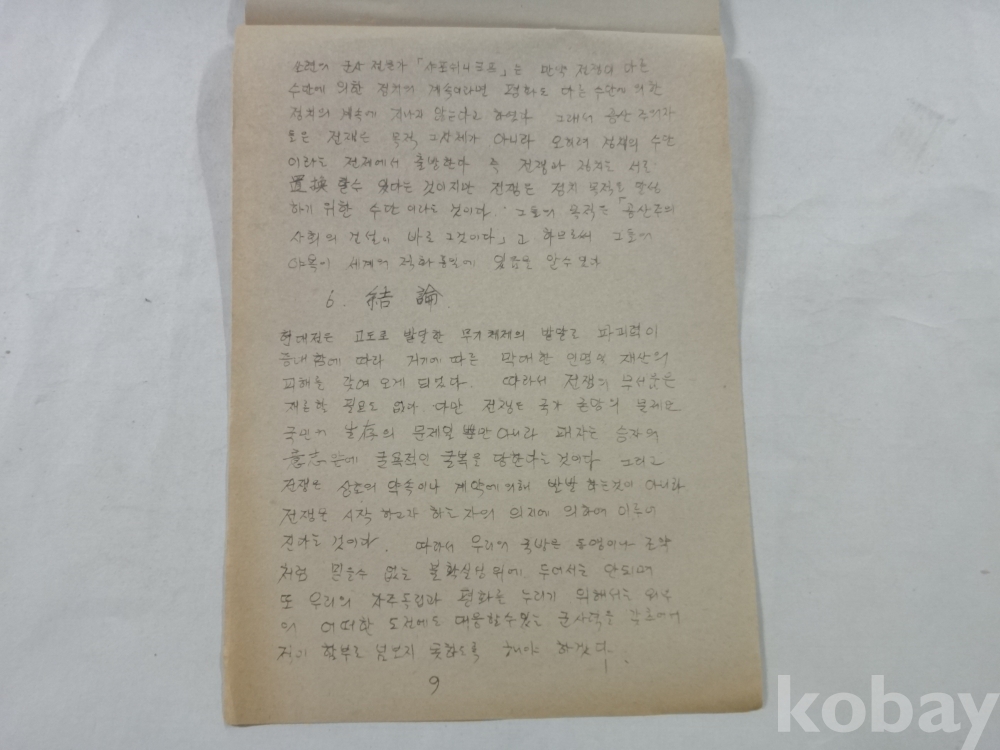 소련의 군사 전문가 「샤포쉬니코프」는 만약 전쟁이 다른
수단에 의한 정치의 계속이라면 평화도 다른 수단에 의한
정치의 계속에 지나지 않는다고 하였다 그래서 공산주의자
들은 전쟁은 목적 그자체가 아니라 오히려 정책의 수단
이라는 전제에서 출발한다 즉 전쟁과 정치는 서로
置換 할수 있다는 것이지만 전쟁은 정치 목적을 달성
하기 위한 수단 이라는 것이다. 그들의 목적은 「공산주의
사회의 건설이 바로 그것이다」고 하므로써 그들의
야욕이 세계의 적화통일에 있음을 알수 있다
6. 結論.
현대전은 고도로 발달한 무기체제의 발달로 파괴력이
증대함에 따라 거기에 따른 막대한 인명과 재산의
피해를 갖여 오게 되었다. 따라서 전쟁의 무서움은
재론할 필요도 없다 다만 전쟁은 국가 존망의 문제인
국민의 生存의 문제일 뿐만 아니라 패자는 승자의
意志 굴욕적인 굴복을 당한다는 것이다 그리고
전쟁은 상호의 약속이나 계약에 의해 발발 하는것이 아니라
전쟁은 시작 하고자 하는 자의 의지에 의하여 이루어
진다는 것이다. 따라서 우리의 국방은 동맹이나 조약
처럼 믿을수 없는 불확실성 위에 두어서는 안되며
또 우리의 자주독립과 평화를 누리기 위해서는 외부
의 어떠한 도전에도 대응할수있는 군사력을 갖추어서
적이 함부로 넘보지 못하도록 해야 하겠다.
9
kobay